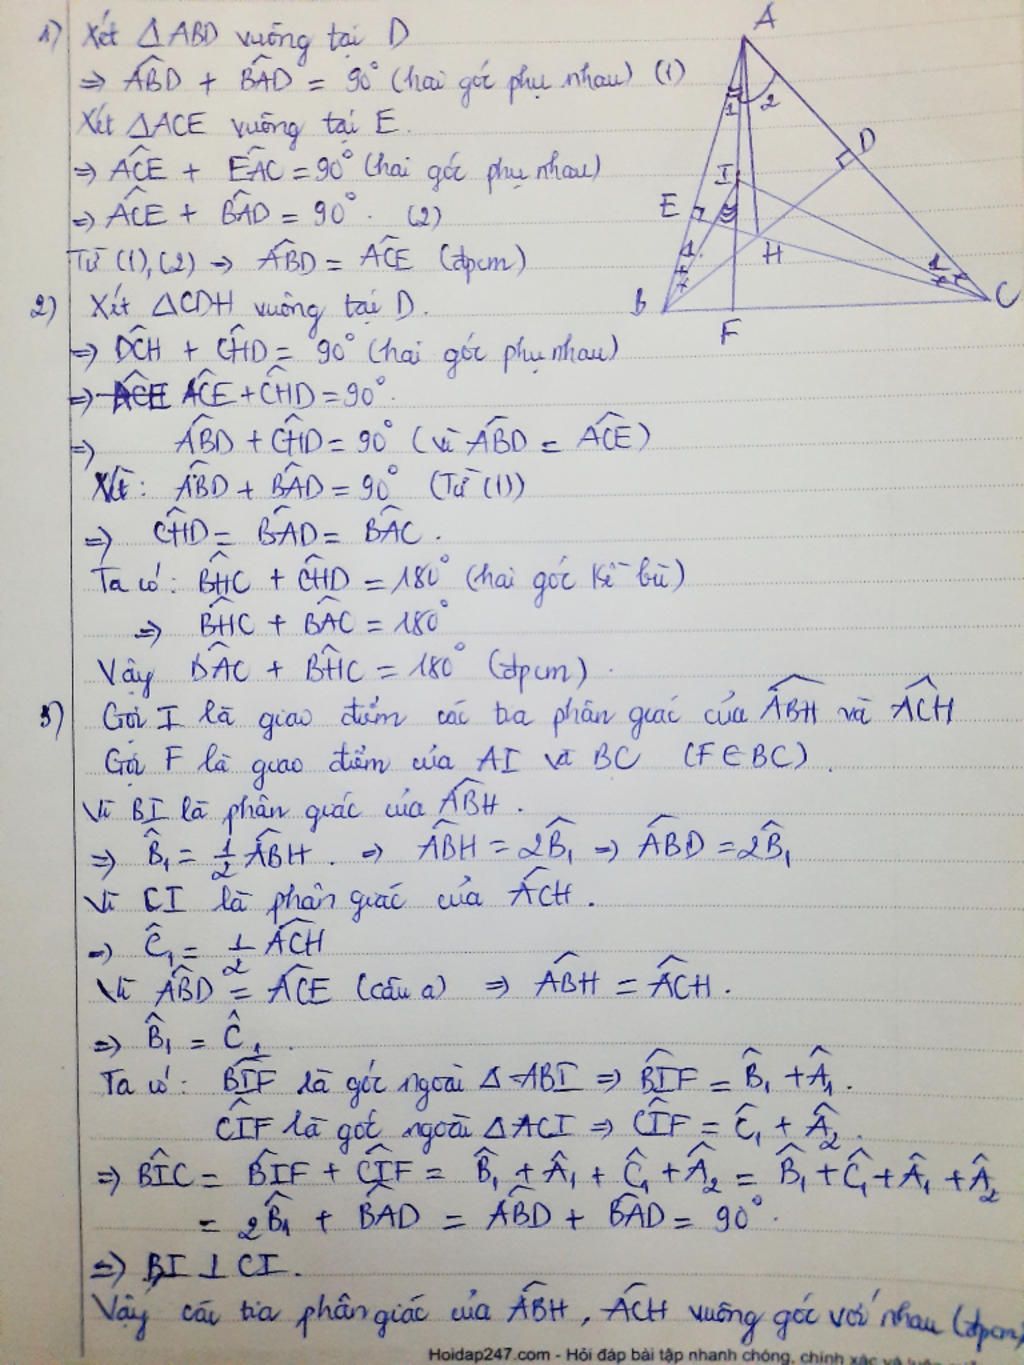 1) Xét ΔABD vuông tại D
⇒ ABD̂ + BAD̂ = 90° (hai góc phụ nhau) (1)
Xét ΔACE vuông tại E.
⇒ ACÊ + EAĈ = 90° (hai góc phụ nhau)
⇒ ACÊ + BAD̂ = 90°. (2)
Từ (1), (2) ⇒ ABD̂ = ACÊ (đpcm)
2) Xét ΔCDH vuông tại D.
⇒ DCĤ + CHD̂ = 90° (hai góc phụ nhau)
⇒ ACÊ + CHD̂ = 90°.
⇒ ABD̂ + CHD̂ = 90° (vì ABD̂ = ACÊ)
Xét: ABD̂ + BAD̂ = 90° (Từ (1))
⇒ CHD̂ = BAD̂ = BAĈ.
Ta có: BHĈ + CHD̂ = 180° (hai góc kề bù)
⇒ BHĈ + BAĈ = 180°
Vậy BAĈ + BHĈ = 180° (đpcm).
3) Gọi I là giao điểm các tia phân giác của ABĤ và ACĤ
Gọi F là giao điểm của AI và BC (F∈BC).
Vì BI là phân giác của ABĤ.
⇒ B̂₁ = 1/2 ABĤ. ⇒ ABĤ = 2B̂₁ ⇒ ABD̂ = 2B̂₁
Vì CI là phân giác của ACĤ.
⇒ Ĉ₁ = 1/2 ACĤ
Vì ABD̂ = ACÊ (câu a) ⇒ ABĤ = ACĤ.
⇒ B̂₁ = Ĉ₁.
Ta có: BIF̂ là góc ngoài ΔABI ⇒ BIF̂ = B̂₁ + Â₁.
CIF̂ là góc ngoài ΔACI ⇒ CIF̂ = Ĉ₁ + Â₂.
⇒ BIĈ = BIF̂ + CIF̂ = B̂₁ + Â₁ + Ĉ₁ + Â₂ = B̂₁ + Ĉ₁ + Â₁ + Â₂
= 2B̂₁ + BAD̂ = ABD̂ + BAD̂ = 90°.
⇒ BI ⊥ CI.
Vậy các tia phân giác của ABĤ, ACĤ vuông góc với nhau (đpcm)
A
1 2
D
I
E
1
H
1
B
C
F
Hoidap247.com - Hỏi đáp bài tập nhanh chóng, chính xác và